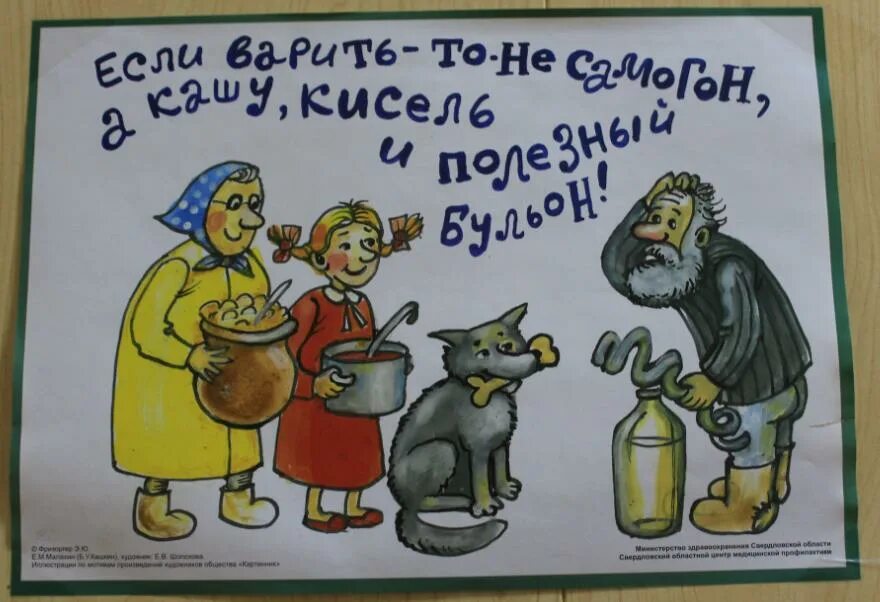 Если варить - то-не самогон,
а кашу, кисель
и полезный
бульон!
© Фризоргер Э.Ю.
Е.М.Малахин (Б.У.Кашкин), художник: Е.В. Шолохова.
Иллюстрации по мотивам произведений художников общества «Картинник»
Министерство здравоохранения Свердловской области
Свердловский областной центр медицинской профилактики